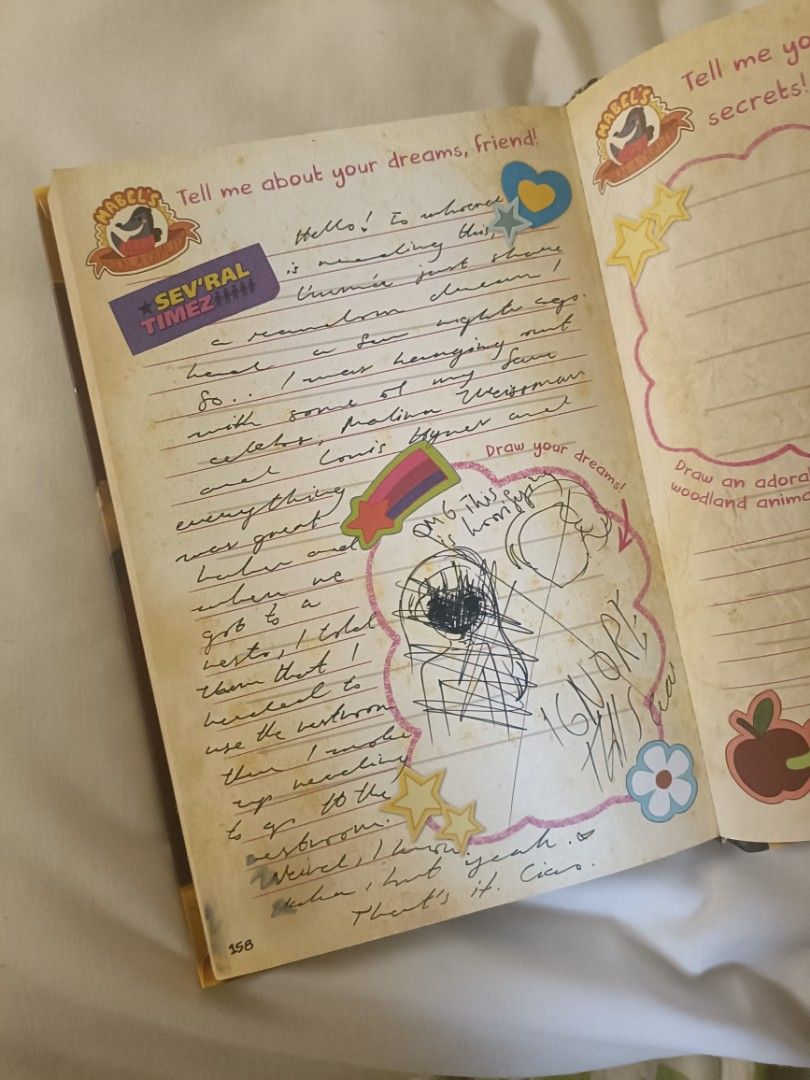 MABEL'S
Tell me about your dreams, friend!
SEV'RAL
TIMEZ
Hello! To whoever
is reading this,
I'mma just share
a random dream I
had a few nights ago.
So.. I was hanging out
with some of my fave
celebs, Malina Weissman
and Louis Hynes and
everything
was great
haha and
when we
got to a
resto, I told
them that I
needed to
use the restroom
then I woke
up needing
to go to the
restroom.
Weird, I know.
haha, but yeah.
That's it. Ciao.
Draw your dreams!
OMG This
is
IGNORE
THIS
158
MABEL'S
Tell me yo
secrets!
Draw an adora
woodland anima